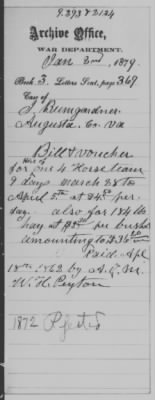 9.293 & 2124
Archive Office,
WAR DEPARTMENT.
Jan 2nd, 1879
Book 3, Letters Sent, page 369
Copy of
J. Bumgardner
Augusta. Co. Va
Bill & voucher
for hire of one 4 Horse team
9 days march 28 to
April 5th at $ per
day. also for 184 lb
hay at per
amounting to $
Paid Apl
18th 1862 by A.Q.M.
W. H. Peyton
1872